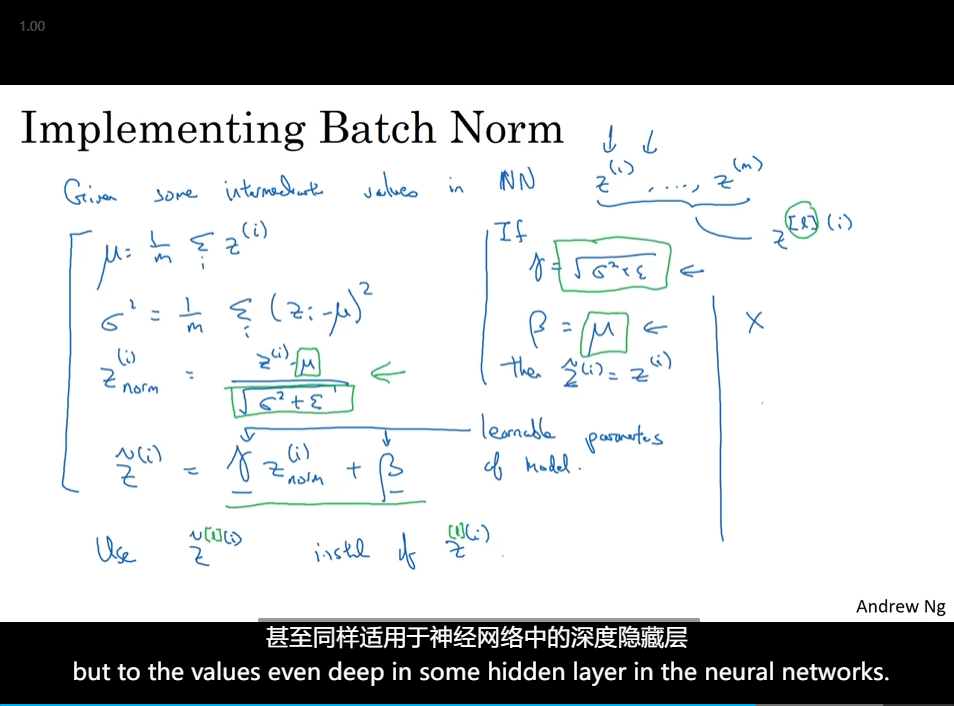 1.00
Implementing Batch Norm
Given some intermediate values in NN z^(i), ..., z^(m)
z^[l](i)
μ = 1/m Σ_i z^(i)
σ² = 1/m Σ_i (z_i - μ)²
z_norm^(i) = (z^(i) - μ) / √(σ² + ε) ←
z̃^(i) = γ z_norm^(i) + β
learnable parameters
of model.
Use z̃^[l](i) instead of z^[l](i).
If
γ = √(σ² + ε) ←
β = μ ←
then z̃^(i) = z^(i)
X
Andrew Ng
甚至同样适用于神经网络中的深度隐藏层
but to the values even deep in some hidden layer in the neural networks.